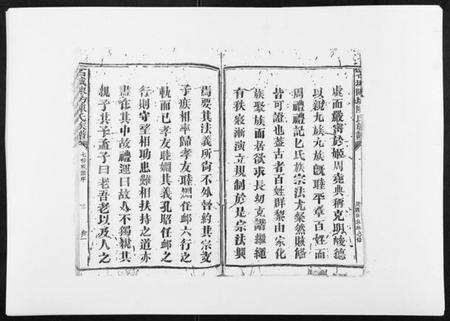 虞而嚴密於姬周堯典稱克明峻德
以親九族九族旣睦平章百姓而
周禮禮記七氏族宗法尤粲然賅備
皆可證也蓋古者百姓群黎由家化
族聚族而居欲求長幼克諧繼繩
有秩寖漸演立規制於是宗法興
焉要其法義所衛不外督約其宗支
子族相率於孝友睦婣任卹六行之
軌而已孝友睦婣其義孔昭任卹之
行則守望相助患難相扶持之道亦
盡在其中故禮運曰故人不獨親其
親子其子孟子曰老吾老以及人之